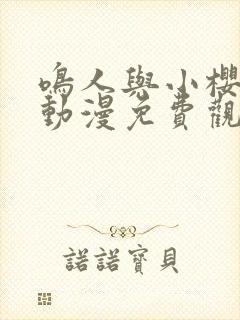 鳴人與小櫻
動漫免費觀
諾諾寶貝